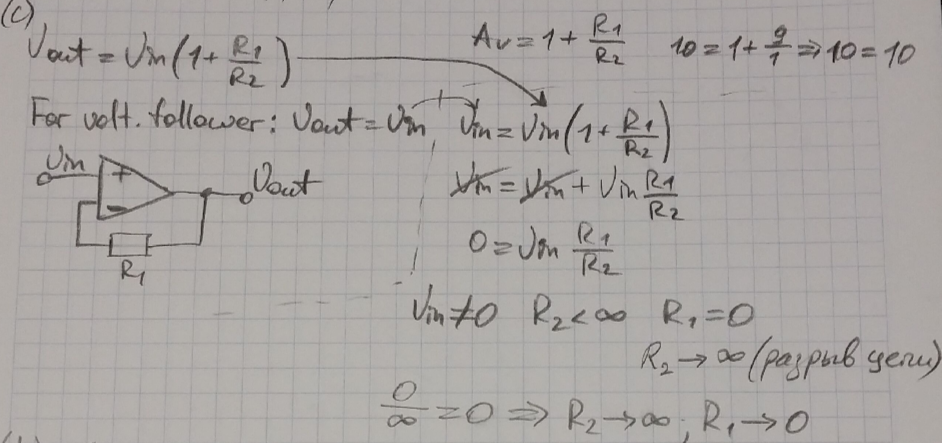 (c)
Vout = Vin(1 + R1/R2)
Av = 1 + R1/R2   10 = 1 + 9/1 ⇒ 10 = 10
For volt. follower: Vout = Vin   Vin = Vin(1 + R1/R2)
Vin = Vin + Vin R1/R2
Vin + − Vout
R1
0 = Vin R1/R2
Vin ≠ 0   R2 < ∞   R1 = 0
R2 → ∞ (разрыв цепи)
0/∞ = 0 ⇒ R2 → ∞, R1 → 0